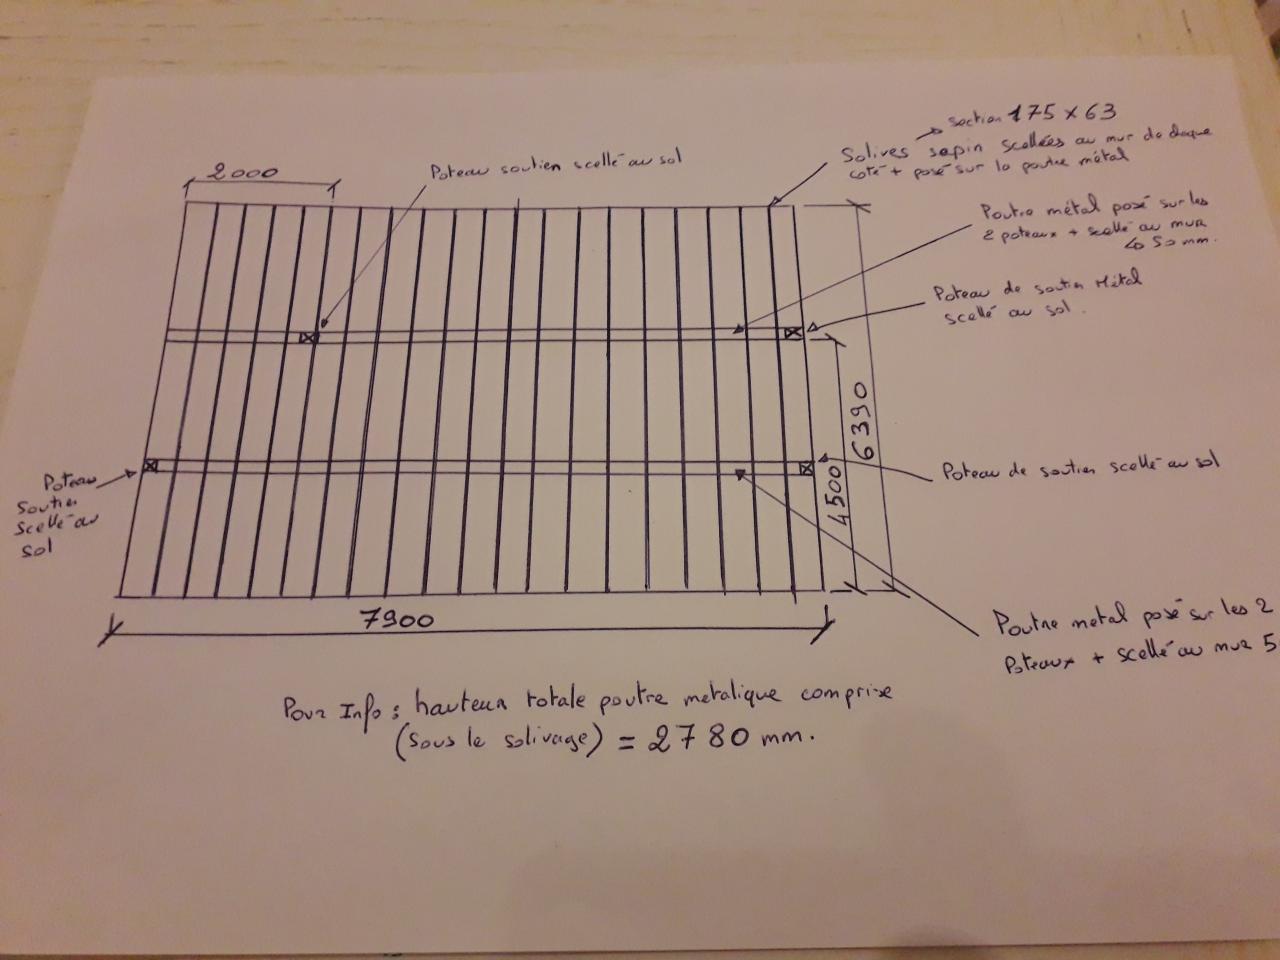 section 175 x 63
Solives sapin scellées au mur de chaque
coté + posé sur la poutre métal
2000
Poteau soutien scellé au sol
Poutre métal posé sur les
2 poteaux + scellé au mur
50 mm.
Poteau de soutien Métal
scellé au sol.
6390
4500
Poteau de soutien scellé au sol
Poteau
soutien
scellé au
sol
7900
Poutre metal posé sur les 2
Poteaux + scellé au mur 5
Pour Info : hauteur totale poutre metalique comprise
(sous le solivage) = 2780 mm.